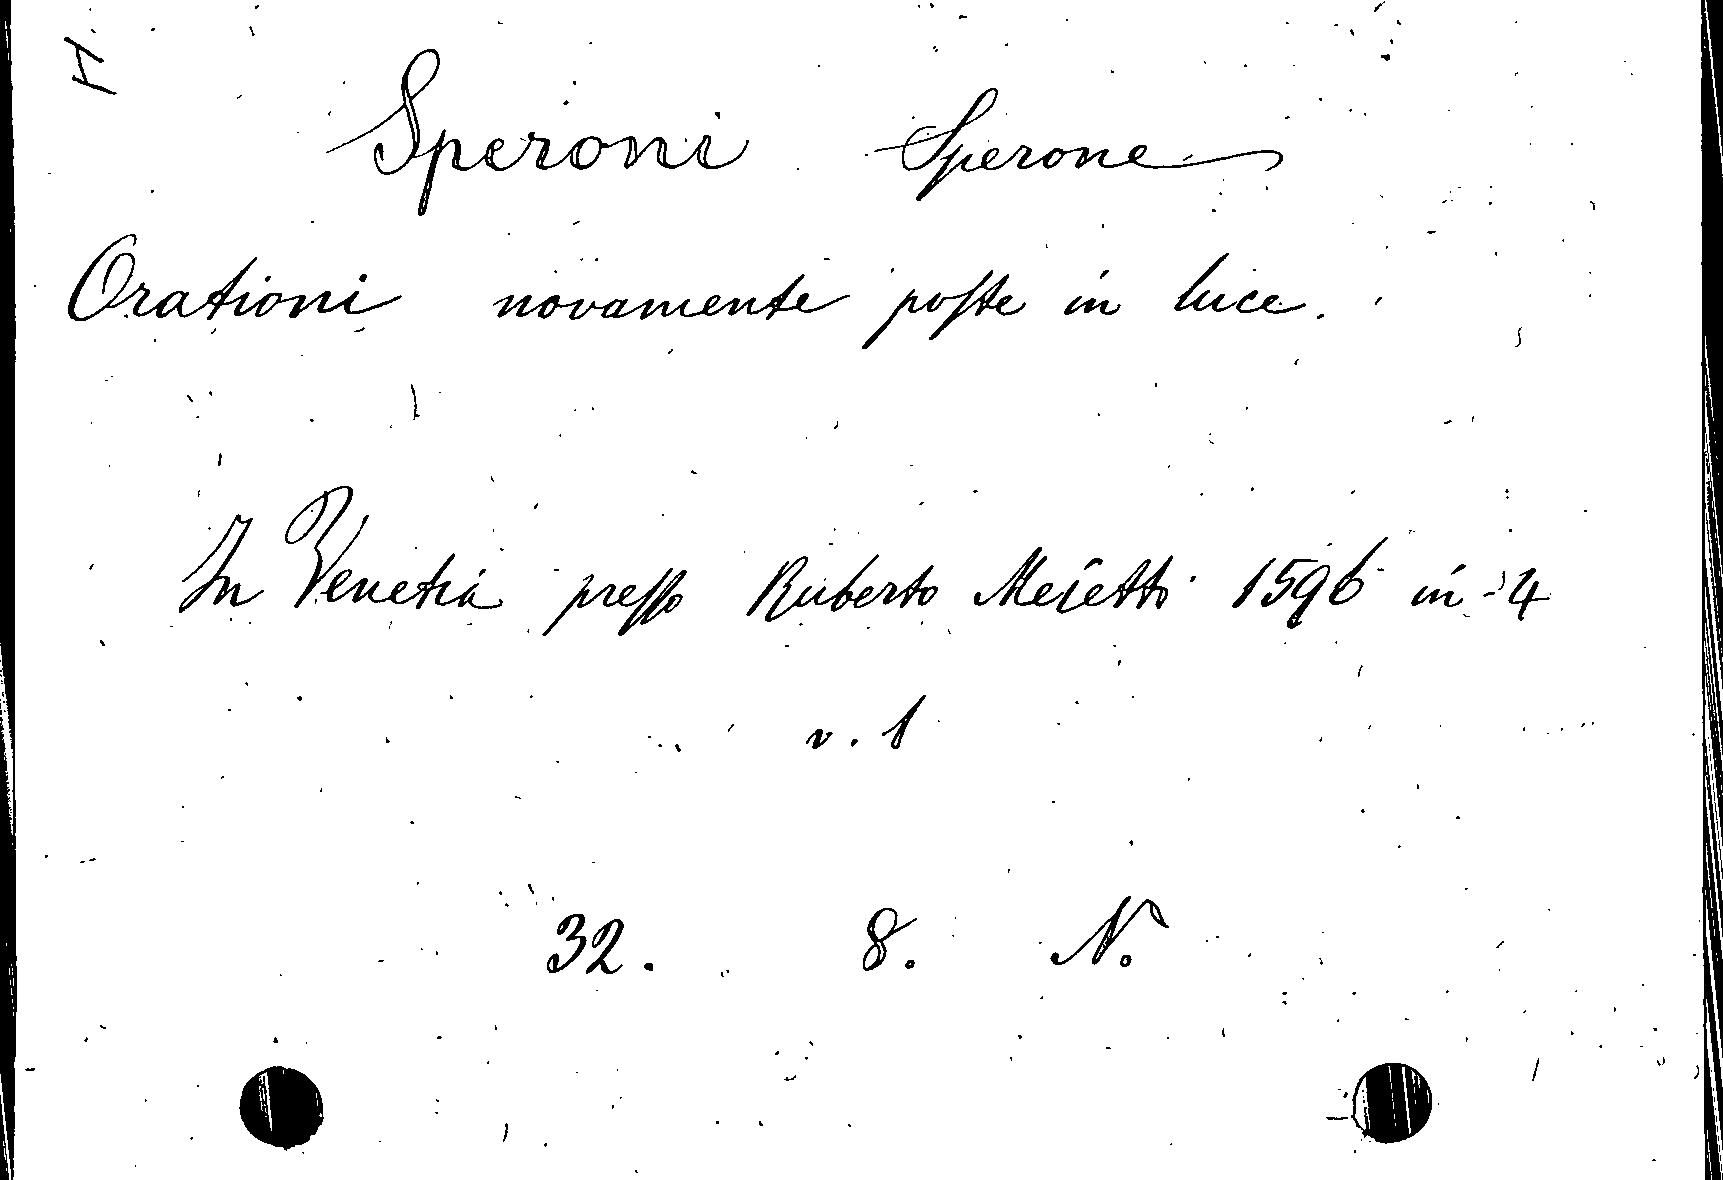 Speroni Sperone
Orationi novamente poſte in luce.
In Venetia preſſo Ruberto Meietti 1596 in-4
v. 1
32. 8. N.